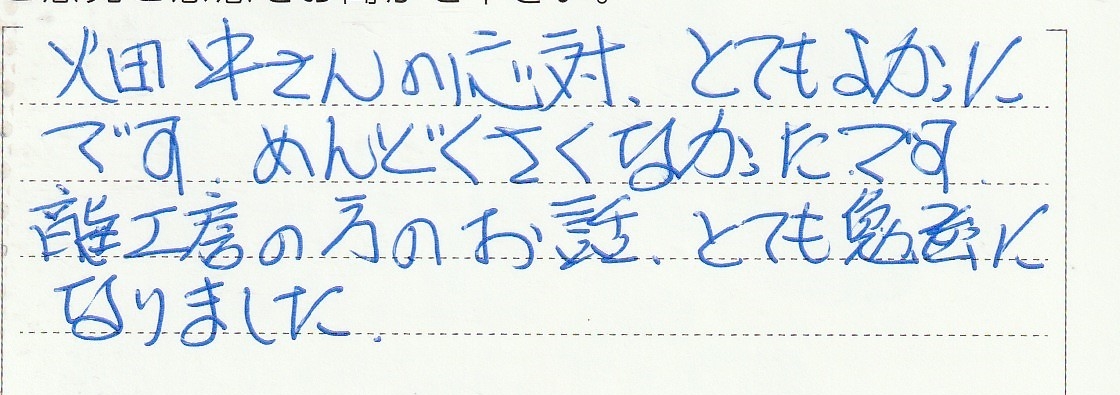 畑中さんの応対、とてもよかった
です。めんどくさくなかったです。
龍工房の方のお話、とても勉強に
なりました。